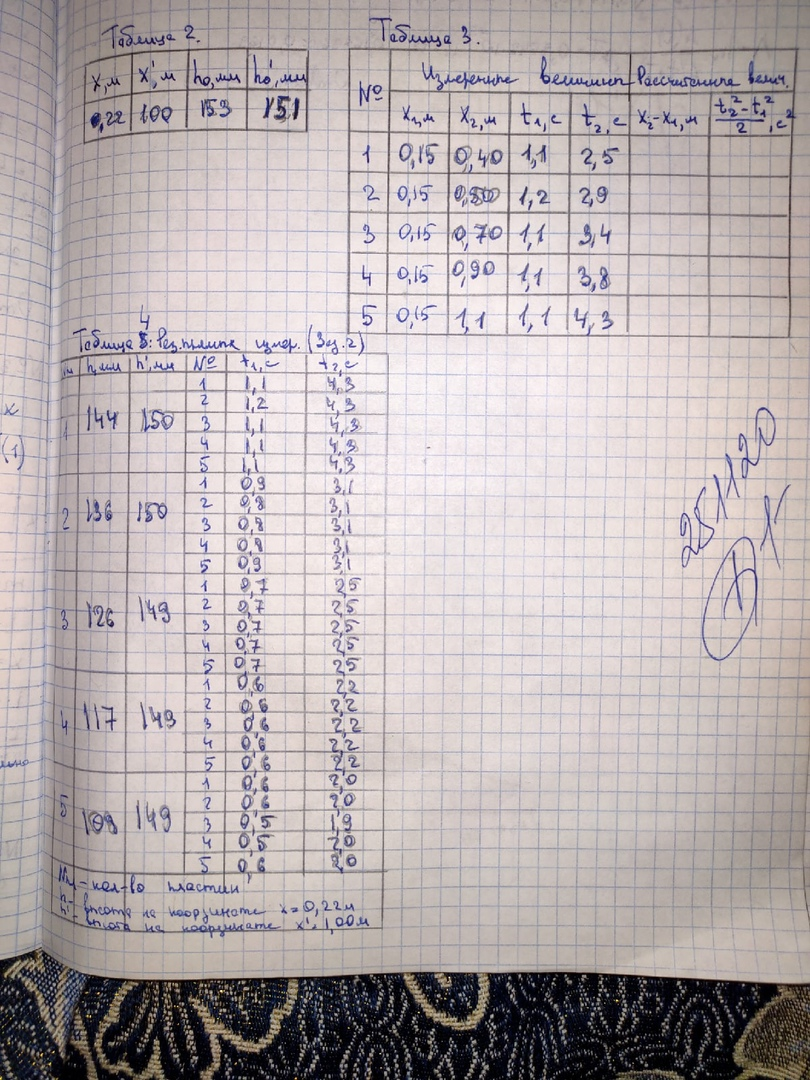 Таблица 2.
x, м x', м h₀, мм h₀', мм
0,22 100 153 151
Таблица 3.
№ Измеренные величины Рассчитанные велич.
x₁, м x₂, м t₁, с t₂, с x₂-x₁, м (t₂²-t₁²)/2, с²
1 0,15 0,40 1,1 2,5
2 0,15 0,50 1,2 2,9
3 0,15 0,70 1,1 3,4
4 0,15 0,90 1,1 3,8
5 0,15 1,1 1,1 4,3
4
Таблица : Рез. измер. (Зад. 2)
h, мм h', мм № t₁, с t₂, с
1 144 150
1 1,1 4,3
2 1,2 4,3
3 1,1 4,3
4 1,1 4,3
5 1,1 4,3
2 136 150
1 0,9 3,1
2 0,8 3,1
3 0,8 3,1
4 0,8 3,1
5 0,9 3,1
3 126 149
1 0,7 2,5
2 0,7 2,5
3 0,7 2,5
4 0,7 2,5
5 0,7 2,5
4 117 149
1 0,6 2,2
2 0,6 2,2
3 0,6 2,2
4 0,6 2,2
5 0,6 2,2
5 109 149
1 0,6 2,0
2 0,6 2,0
3 0,5 1,9
4 0,5 2,0
5 0,6 2,0
- кол-во пластин
h - высота на координате x = 0,22 м
h' - высота на координате x' = 1,00 м
x
(1)
251120